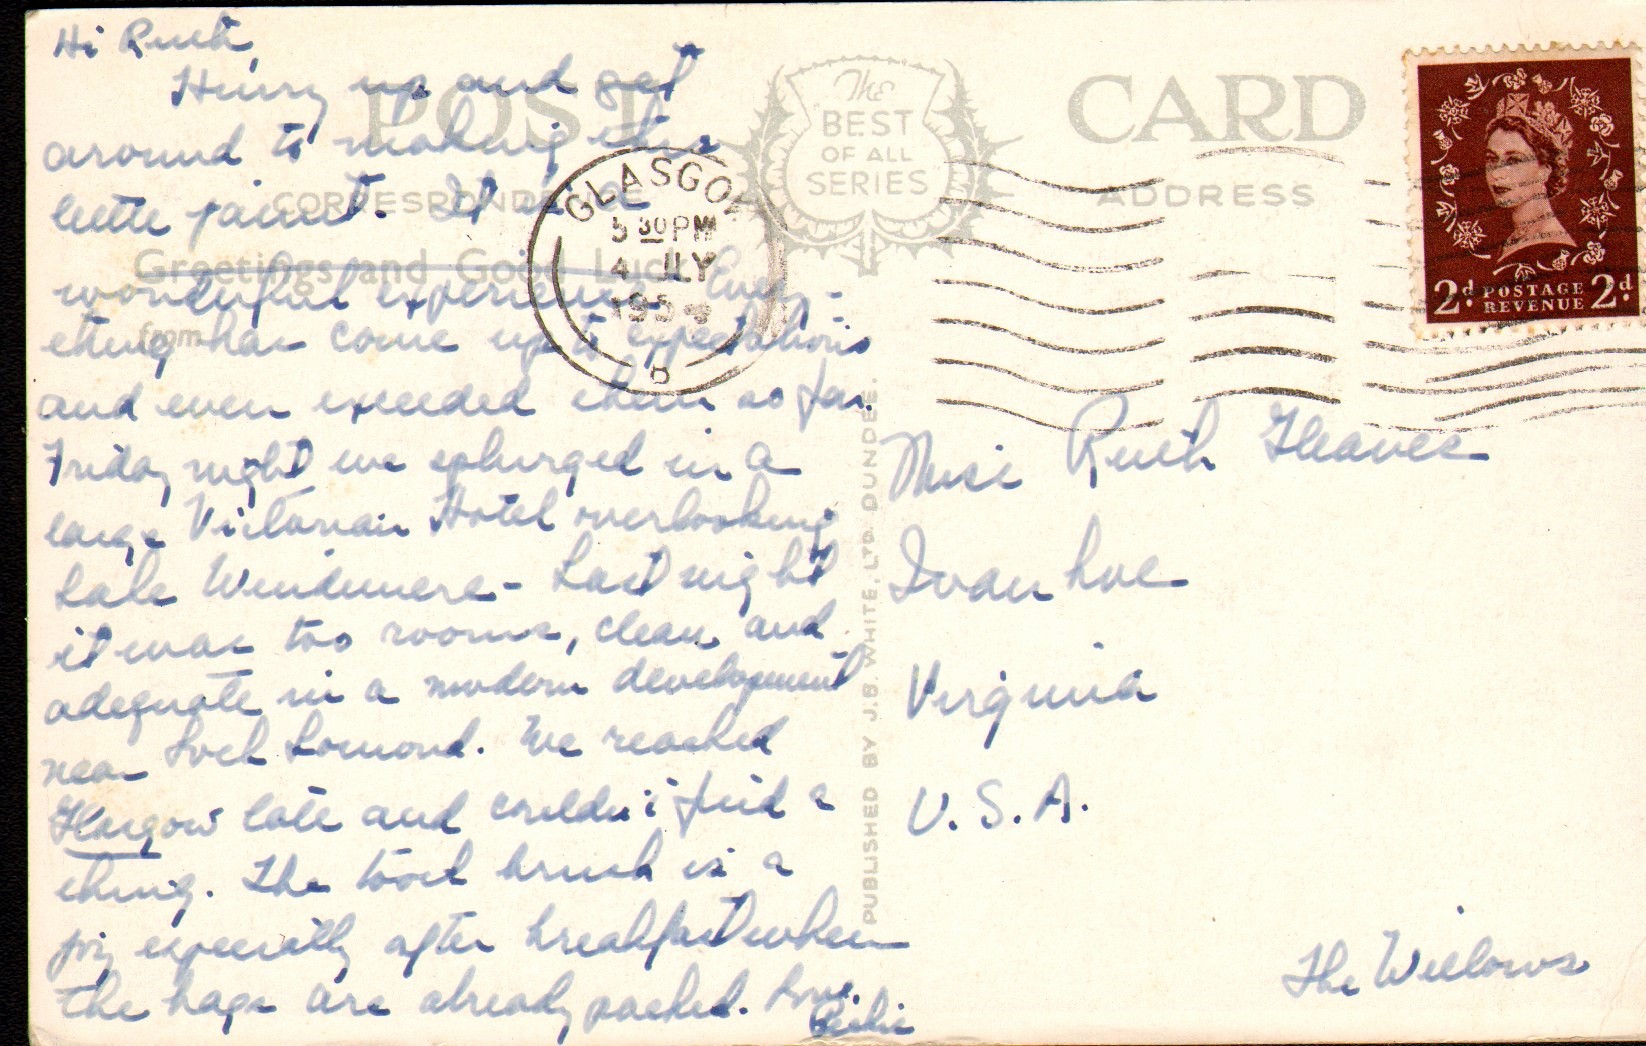 Hi Ruth,
Hurry up and get
around to making this
little jaunt. It is a
wonderful experience. Every-
thing has come up to expectations
and even exceeded them so far.
Friday night we splurged in a
large Victorian Hotel overlooking
Lake Windemere - Last night
it was two rooms, clean and
adequate in a modern development
near Loch Lomond. We reached
Glasgow late and couldn't find a
thing. The tooth brush is a
joy especially after breakfast when
the bags are already packed. Love,
POST CARD
CORRESPONDENCE
ADDRESS
The
BEST
OF ALL
SERIES
Greetings and Good Luck
from
GLASGOW
5 30 PM
4 JLY
195
PUBLISHED BY J.B. WHITE, LTD. DUNDEE.
2d. POSTAGE REVENUE 2d.
Miss Ruth Gleaves
Ivanhoe
Virginia
U.S.A.
The Willows